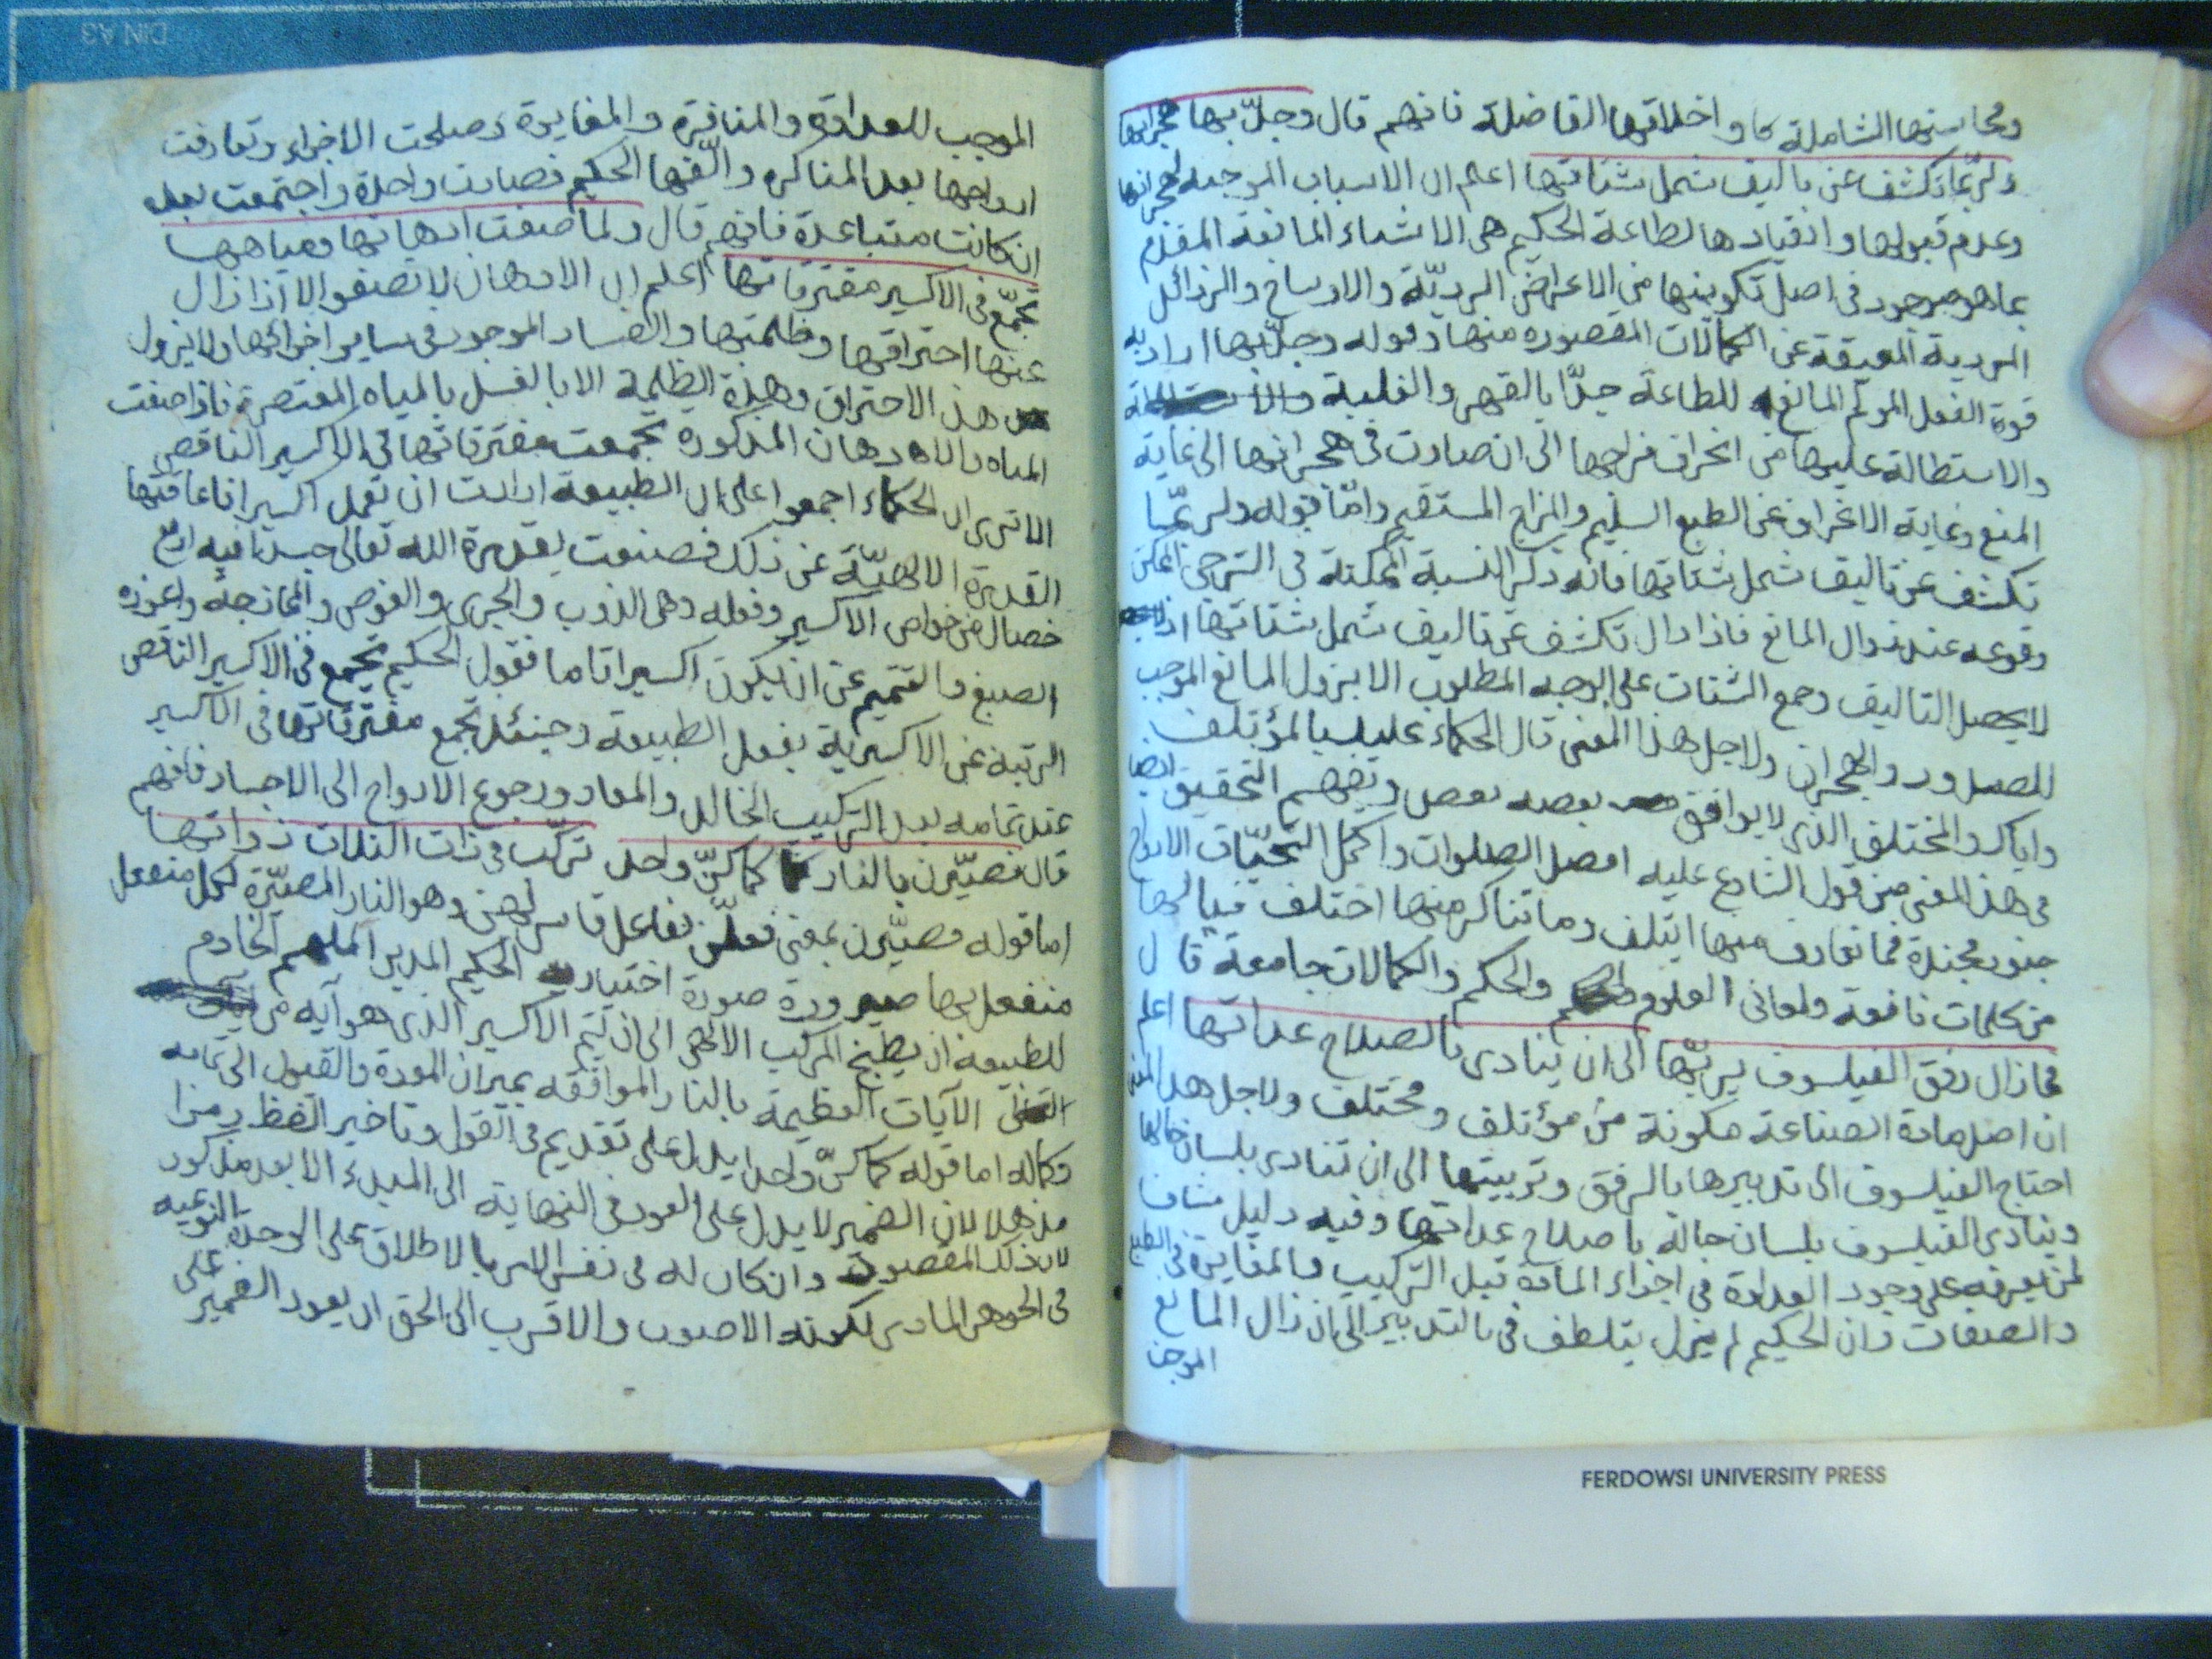 ومحاسنها الشاملة كا و اخلاقها الفاضلة فافهم قال وجلّ بها هجرانها
ولربّما تكشف عن تاليف شمل شتاتها اعلم ان الاسباب الموجبه لهجرانها
وعدم قبولها وانقيادها لطاعة الحكيم هى الاشياء المانعة
بما هو موجود فى اصل تكوينها من الاعراض الرديّة والاوساخ والرذائل
المردية المعيقة عن الكمالات المقصوره منها وقوله وجلّ بها اراد به
قوة الفعل المانع للطاعة جدّا بالقهر والغلبة
والاستطالة عليها من انحراف مزاجها الى ان صارت فى هجرانها الى غاية
المنع وغاية الانحراف عن الطبع السليم والمزاج المستقيم وامّا قوله ولربّما
تكشف عن تاليف شمل شتاتها فانه ذكر النسبة الممكنة فى الترجى الممكن
وقوعه عند زوال المانع فاذا زال تكشف عن تاليف شمل شتاتها اذ
لا يحصل التاليف وجمع الشتات على الوجه المطلوب الا بزول المانع الموجب
للصدود والهجران ولاجل هذا المعنى قال الحكماء عليك بالمؤتلف
واياك والمختلف الذى لا يوافق بعضه بعض ويفهم التحقيق ايضا
فى هذا المعنى من قول الشارع عليه افضل الصلوات واكمل التحيّات الارواح
جنود مجندة فما تعارف منها ايتلف وما تناكر منها اختلف فيا لها
من كلمات نافعة ولمعانى العلوم والحكم والكمالات جامعة قال
فما زال رفق الفيلسوف يربّها الى ان ينادى بالصلاح عداتها اعلم
ان اصل مادة الصناعة مكونة من مؤتلف ومختلف ولاجل هذا المعنى
احتاج الفيلسوف الى تدبيرها بالرفق وتربيتها الى ان تنادى بلسان حالها
وينادى الفيلسوف بلسان حاله باصلاح عداتها وفيه دليل
لمن يعرفه على وجود العداوة فى اجزاء المادة قبل التركيب والمغايرة فى الطبع
والصفات وان الحكيم لم يزل يتلطف فى بالتدبير الى ان زال المانع
الموجب
الموجب للعداوة والمنافرة والمغايرة وصلحت الاجزاء وتعارفت
ارواحها بعد المناكره والّفها الحكيم فصارت واحدة واجتمعت بعد
ان كانت متباعدة فافهم قال ولما صفت ادهانها ومياهها
تجمّع فى الاكسير مفترقاتها اعلم ان الادهان لا تصفو الا اذا زال
عنها احتراقها وظلمتها والفساد الموجود فى ساير اجزائها ولا يزول
هذ الاحتراق وهذه الظلمة الا بالغسل بالمياه المعتصرة فاذا صفت
المياه والادهان المذكوره تجمعت مفترقاتها فى الاكسير الناقص
الا ترى ان الحكماء اجمعوا على ان الطبيعة ارادت ان تعمل اكسيرا فاعاقتها
القدرة الالهيّة عن ذلك فصنعت بقدرة الله تعالى جسدا فيه اربع
خصال من خواص الاكسير وفعله وهى الذوب والجرى والغوص والممازجة واعوزه
الصبغ والتتميم عن ان يكون اكسيرا تاما فقول الحكيم تجمع فى الاكسير الناقص
الرتبة عن الاكسيرية بفعل الطبيعة وحينئذ تجمع مفترقاتها فى الاكسير
عند تمامه بعد التركيب الخالد والمعاد ورجوع الارواح الى الاجساد فافهم
قال فصيّرن بالنار كما كنّ واحد تركّب فى ذات الثلاث ذواتها
اما قوله فصيّرن بمعنى فعلن بفاعل قاسر لهن وهو النار المصيّرة لكل منفعل
منفعل بها صيرورة صورة اختيارية الحكيم المدبر الملهم الخادم
للطبيعة ان يطبخ المركب الالهى الى ان يتم الاكسير الذى هو آية من
الآيات العظيمة بالنار الموافقة بميزان المودة والقبول الى تمامه
وكماله اما قوله كما كنّ واحدا يدل على تقديم فى القول وتاخير اللفظ رمزا
مذهلا لان الضمير لا يدل على العود فى النهاية الى المبدء الا بعد مذكور
لان ذلك المقصود وان كان له فى نفس الامر بالاطلاق على الوحدة النوعيه
فى الجوهر المادى لكونه الاصوب والاقرب الى الحق ان يعود الضمير على
FERDOWSI UNIVERSITY PRESS
DIN A3